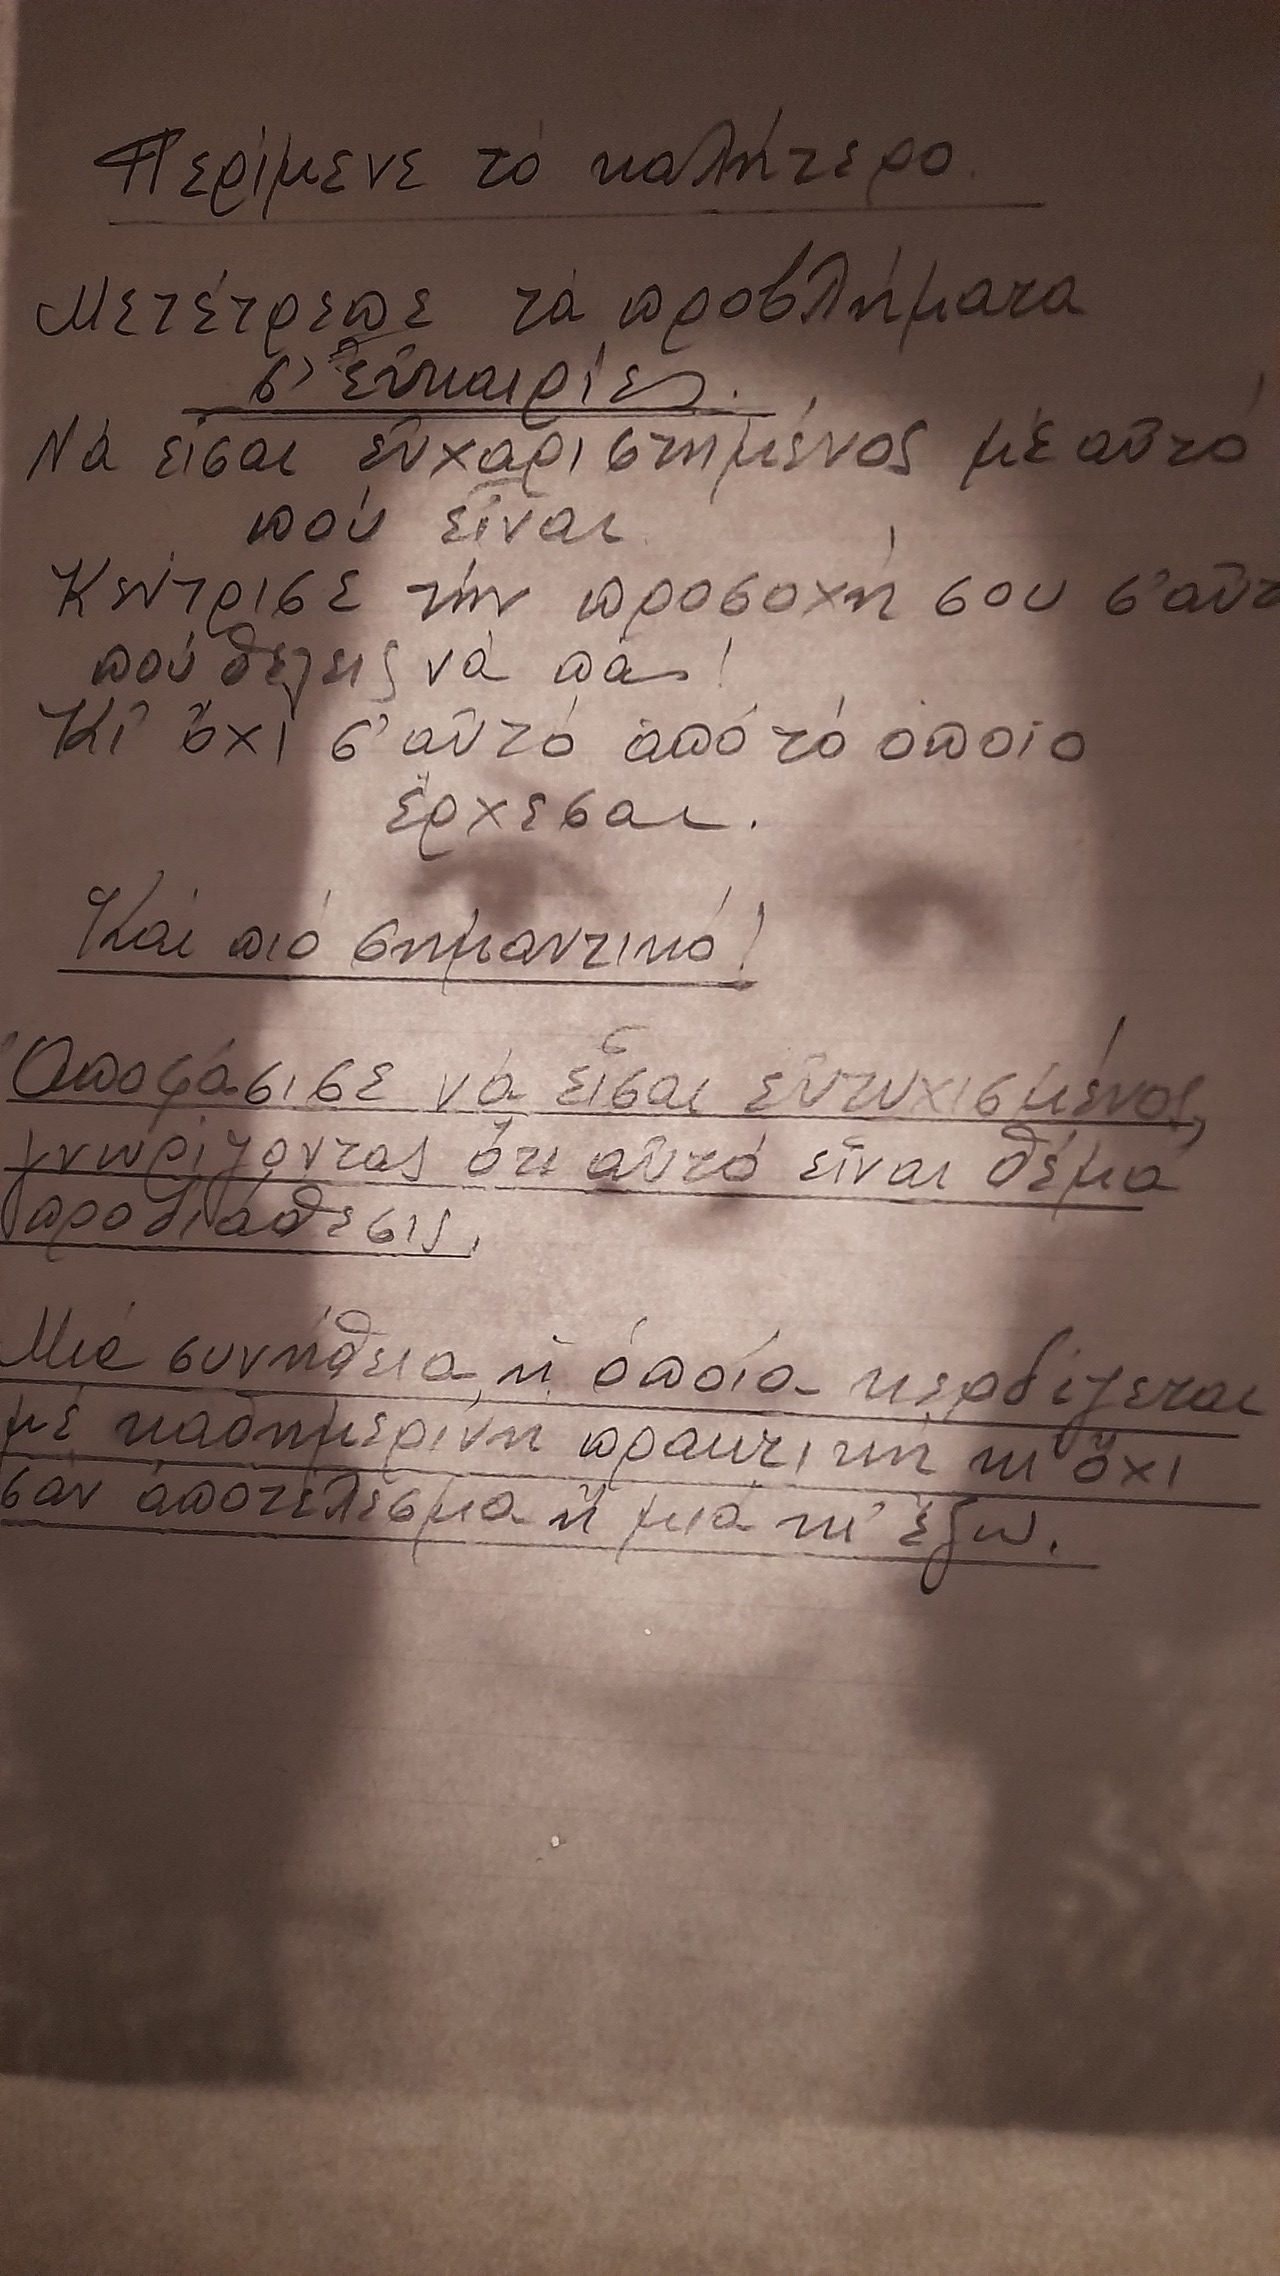 Περίμενε τό καλήτερο.
Μετέτρεπε τά προβλήματα
σ' εὐκαιρίες.
Νά εἶσαι εὐχαριστημένος μέ αὐτό
πού εἶναι
Κέντρισε τήν προσοχή σου σ' αὐτ
πού θέλεις νά πᾶς!
Κι' ὄχι σ' αὐτό ἀπό τό ὁποίο
ἔρχεσαι.
Καί πιό σημαντικό!
Ἀποφάσισε νά εἶσαι εὐτυχισμένος,
γνωρίζοντας ὅτι αὐτό εἶναι θέμα
προδιάθεσις.
Μιά συνήθεια, ἡ ὁποία κερδίζεται
μέ καθημερινή πρακτική κι' ὄχι
σάν ἀποτέλεσμα ἤ μιά κι' ἔξω.